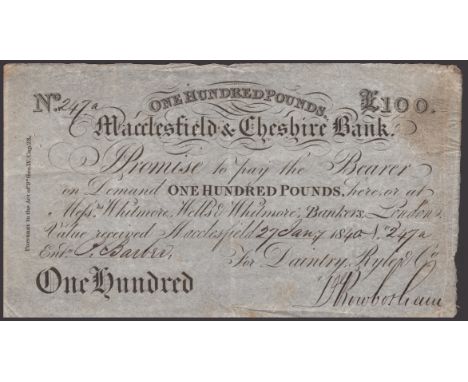 ONE HUNDRED POUNDS.
No. 247a £100.
Macclesfield & Cheshire Bank.
I Promise to pay the Bearer
on Demand ONE HUNDRED POUNDS, here, or at
Messrs. Whitmore, Wells & Whitmore, Bankers, London
Value received Macclesfield 27 Jany 1840 No. 247a
Entd. Barber, For Daintry, Ryle & Co
One Hundred